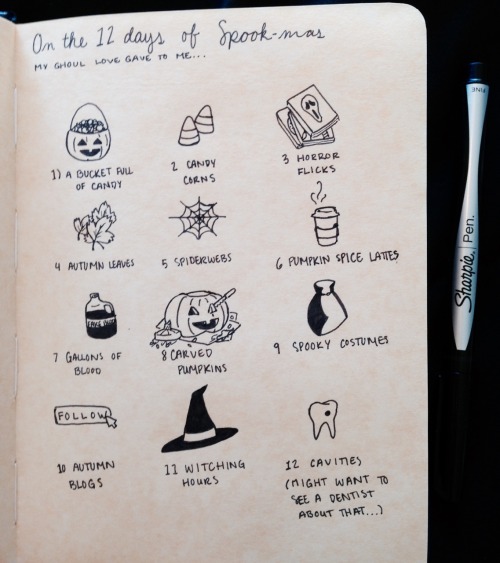 On the 12 days of Spook-mas
MY GHOUL LOVE GAVE TO ME...
1) A BUCKET FULL
OF CANDY
2 CANDY
CORNS
3 HORROR
FLICKS
4 AUTUMN LEAVES
5 SPIDERWEBS
6 PUMPKIN SPICE LATTES
FAKE BLOOD
7 GALLONS OF
BLOOD
8 CARVED
PUMPKINS
9 SPOOKY COSTUMES
FOLLOW
10 AUTUMN
BLOGS
11 WITCHING
HOURS
12 CAVITIES
(MIGHT WANT TO
SEE A DENTIST
ABOUT THAT...)
FINE
Sharpie | Pen.